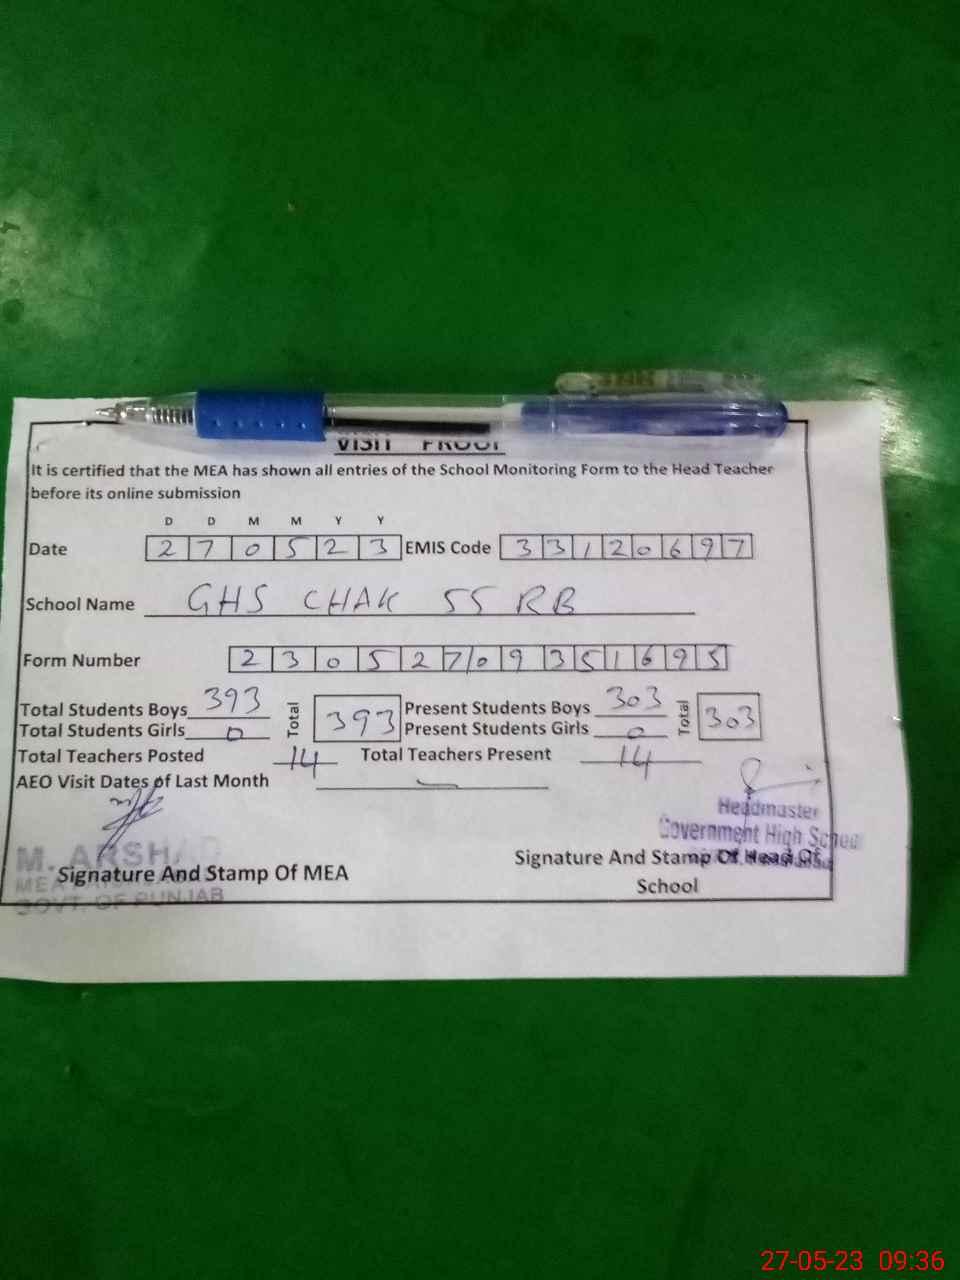 VISIT PROOF
It is certified that the MEA has shown all entries of the School Monitoring Form to the Head Teacher
before its online submission
D D M M Y Y
Date 2 7 0 5 2 3 EMIS Code 3 3 1 2 0 6 9 7
School Name GHS CHAK 55 RB
Form Number 2 3 0 5 2 7 0 9 3 5 1 6 9 5
Total Students Boys 393 Total 393 Present Students Boys 303 Total 303
Total Students Girls 0 Present Students Girls 0
Total Teachers Posted 14 Total Teachers Present 14
AEO Visit Dates of Last Month
Headmaster
Government High School
M. ARSHAD
Signature And Stamp Of MEA
MEA
GOVT. OF PUNJAB
Signature And Stamp Of Head Of
School
27-05-23 09:36